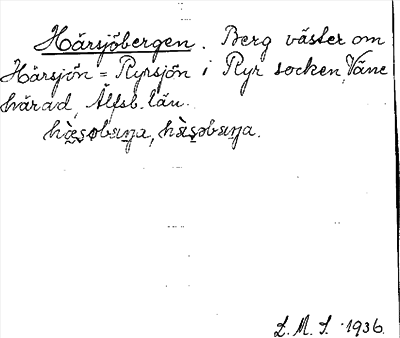 Härsjöbergen. Berg väster om
Härsjön = Ryrsjön i Ryr socken, Väne
härad, Älfsb. län.
hæ̀ʂobæŋa, hæ̀ʂəbæŋa.
L. M. S. 1936.